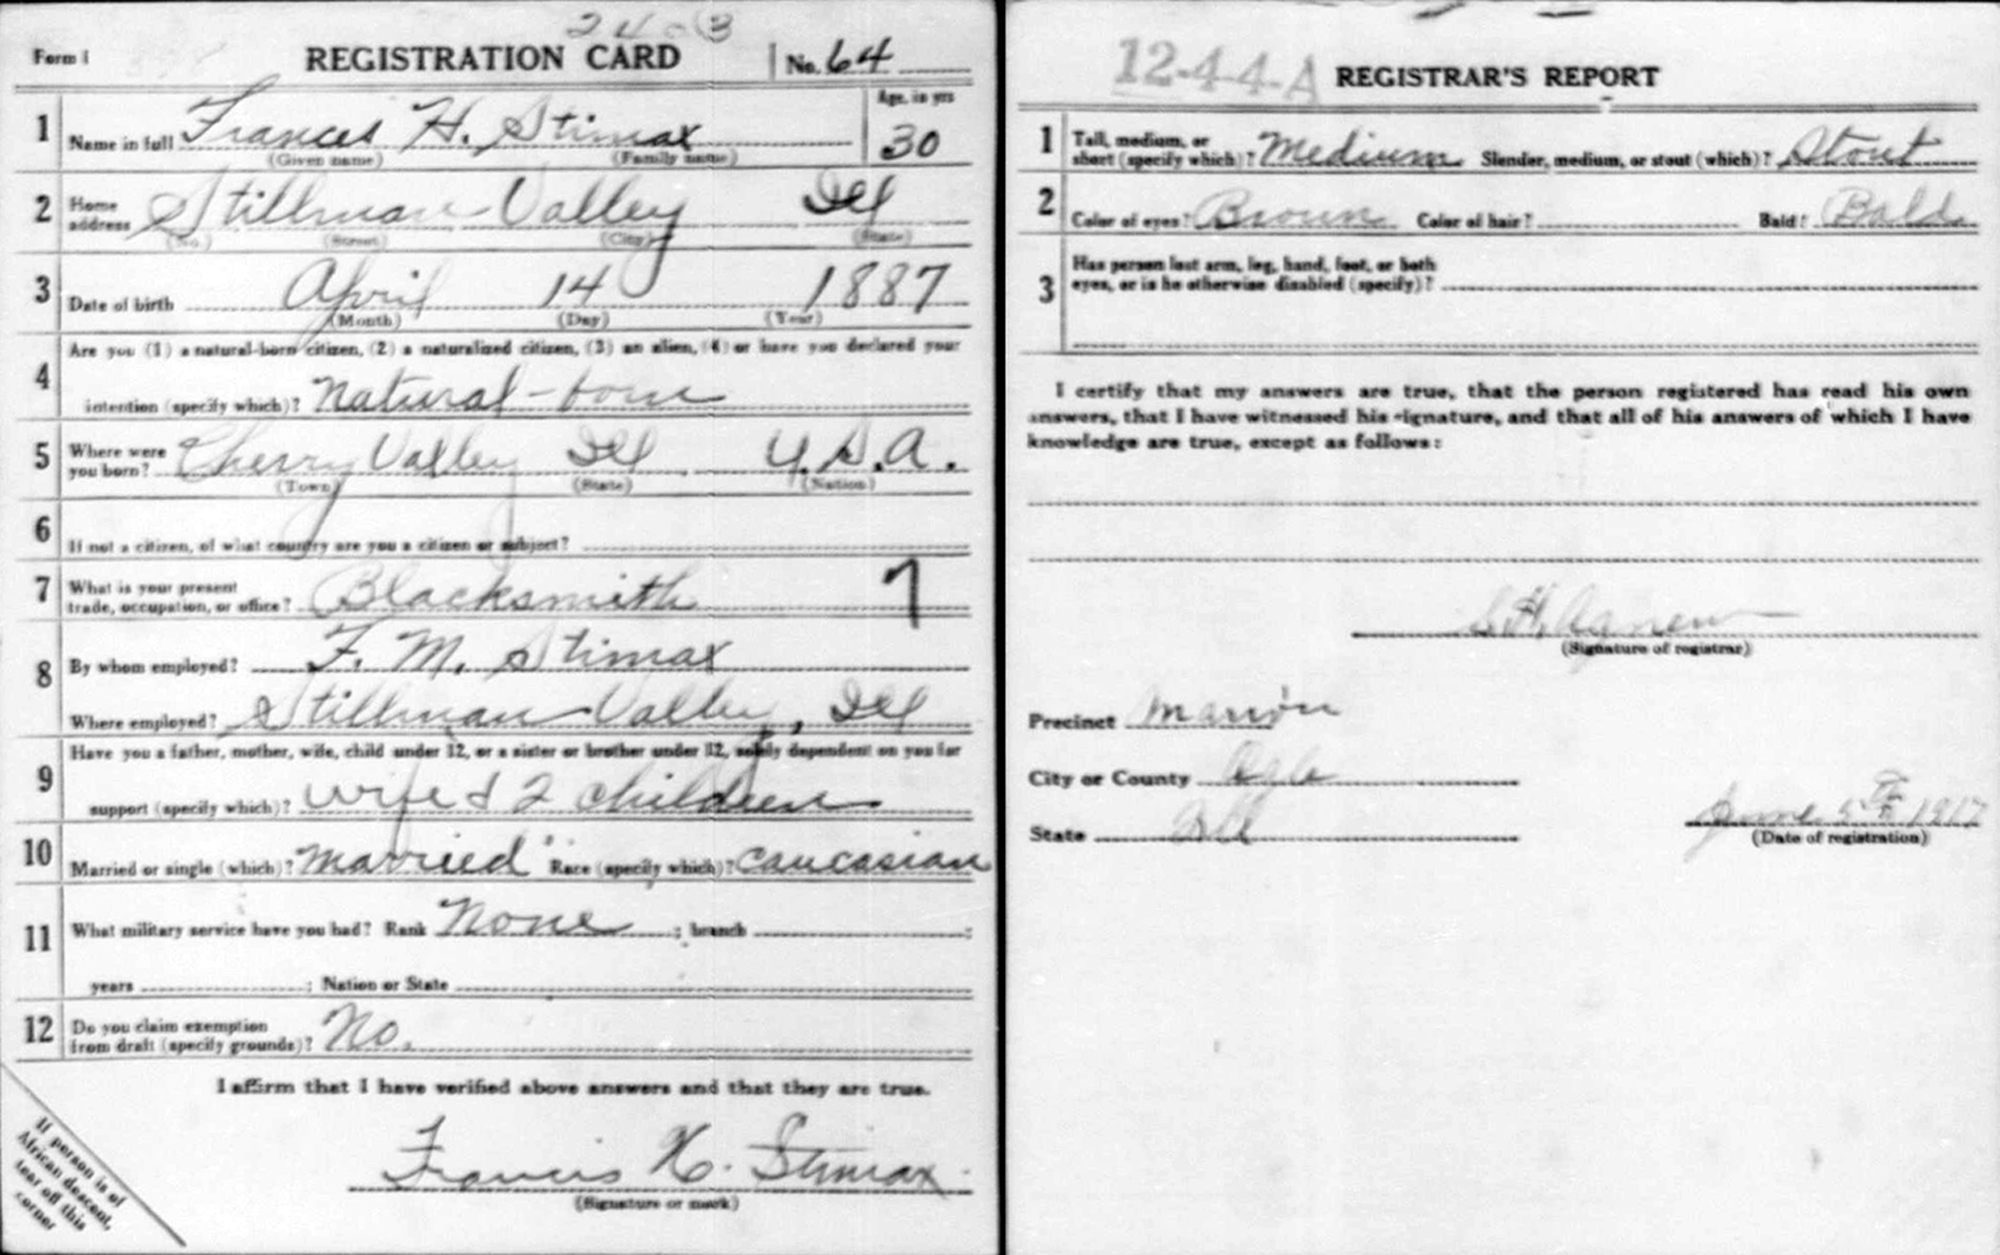 240 3
Form 1 REGISTRATION CARD No. 64
1 Name in full Frances H. Stimax Age, in yrs 30
(Given name) (Family name)
2 Home address Stillman Valley Ill
(No.) (Street) (City) (State)
3 Date of birth April 14 1887
(Month) (Day) (Year)
Are you (1) a natural-born citizen, (2) a naturalized citizen, (3) an alien, (4) or have you declared your
4 intention (specify which)? Natural-born
5 Where were you born? Cherry Valley Ill U.S.A.
(Town) (State) (Nation)
6 If not a citizen, of what country are you a citizen or subject?
7 What is your present trade, occupation, or office? Blacksmith 7
8 By whom employed? F. M. Stimax
Where employed? Stillman Valley, Ill
Have you a father, mother, wife, child under 12, or a sister or brother under 12, solely dependent on you for
9 support (specify which)? wife & 2 children
10 Married or single (which)? Married Race (specify which)? Caucasian
11 What military service have you had? Rank None ; branch ;
years ; Nation or State
12 Do you claim exemption from draft (specify grounds)? No.
I affirm that I have verified above answers and that they are true.
Francis H. Stimax
(Signature or mark)
If person is of
African descent,
tear off this
corner
12-4-4-A REGISTRAR'S REPORT
1 Tall, medium, or short (specify which)? Medium Slender, medium, or stout (which)? Stout
2 Color of eyes? Brown Color of hair? Bald? Bald
3 Has person lost arm, leg, hand, foot, or both
eyes, or is he otherwise disabled (specify)?
I certify that my answers are true, that the person registered has read his own
answers, that I have witnessed his signature, and that all of his answers of which I have
knowledge are true, except as follows:
S. H. Agnew
(Signature of registrar)
Precinct Marion
City or County Ogle
State Ill
June 5th 1917
(Date of registration)